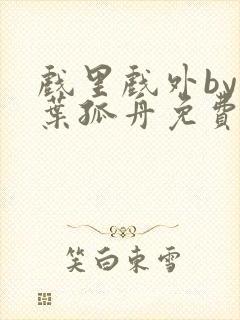 戲里戲外by
葉孤舟免費
笑白東雪